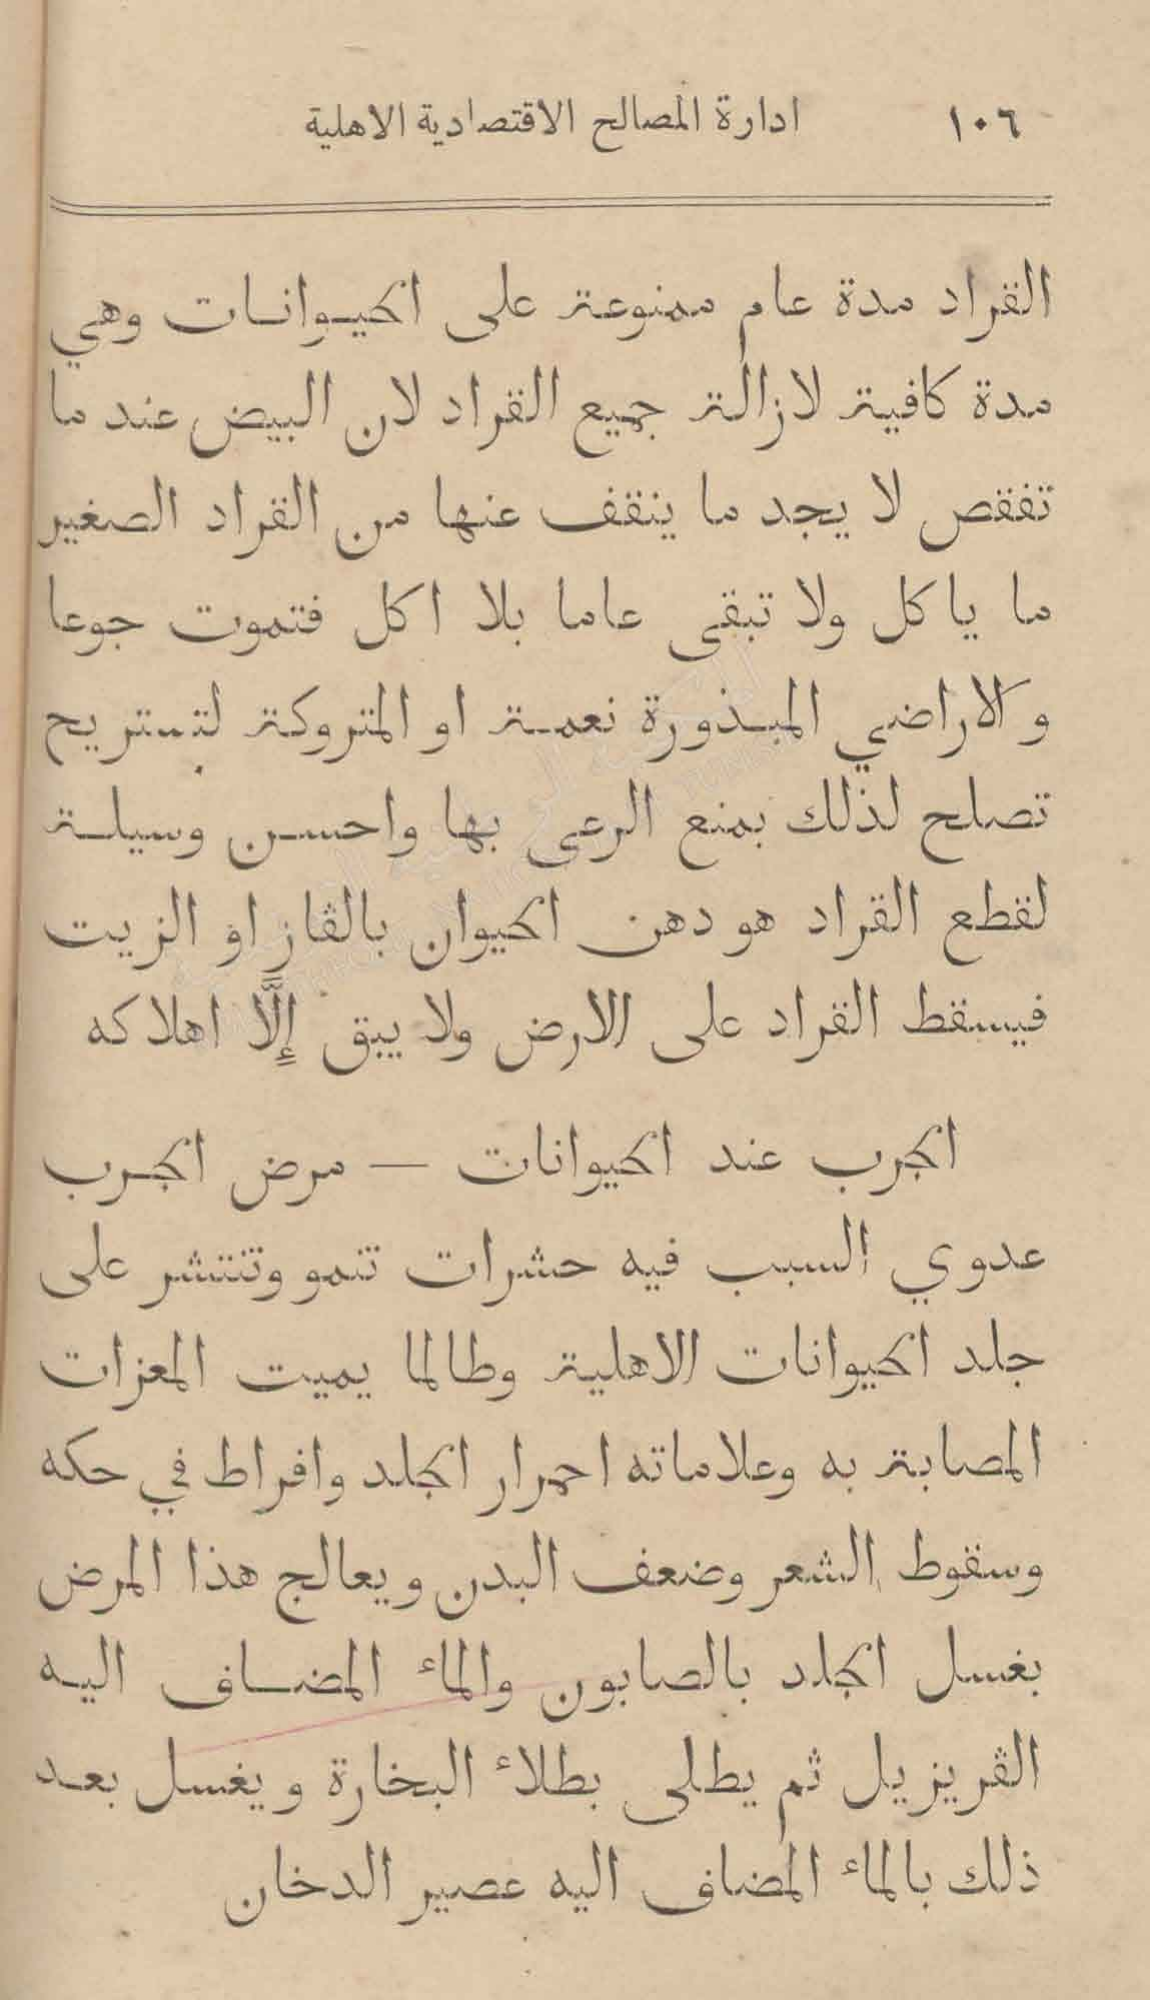 ١٠٦ ادارة المصالح الاقتصادية الاهلية
القراد مدة عام ممنوعة على الحيوانات وهي
مدة كافية لازالة جميع القراد لان البيض عند ما
تفقص لا يجد ما ينقف عنها من القراد الصغير
ما ياكل ولا تبقى عاما بلا اكل فتموت جوعا
والاراضي المبذورة نعمة او المتروكة لتستريح
تصلح لذلك بمنع الرعى بها واحسن وسيلة
لقطع القراد هو دهن الحيوان بالڤاز او الزيت
فيسقط القراد على الارض ولا يبق إلّا اهلاكه
الجرب عند الحيوانات — مرض الجرب
عدوي السبب فيه حشرات تنمو وتنتشر على
جلد الحيوانات الاهلية وطالما يميت المعزات
المصابة به وعلاماته احمرار الجلد وافراط في حكه
وسقوط الشعر وضعف البدن ويعالج هذا المرض
بغسل الجلد بالصابون والماء المضاف اليه
الڤريزيل ثم يطلى بطلاء البخارة ويغسل بعد
ذلك بالماء المضاف اليه عصير الدخان